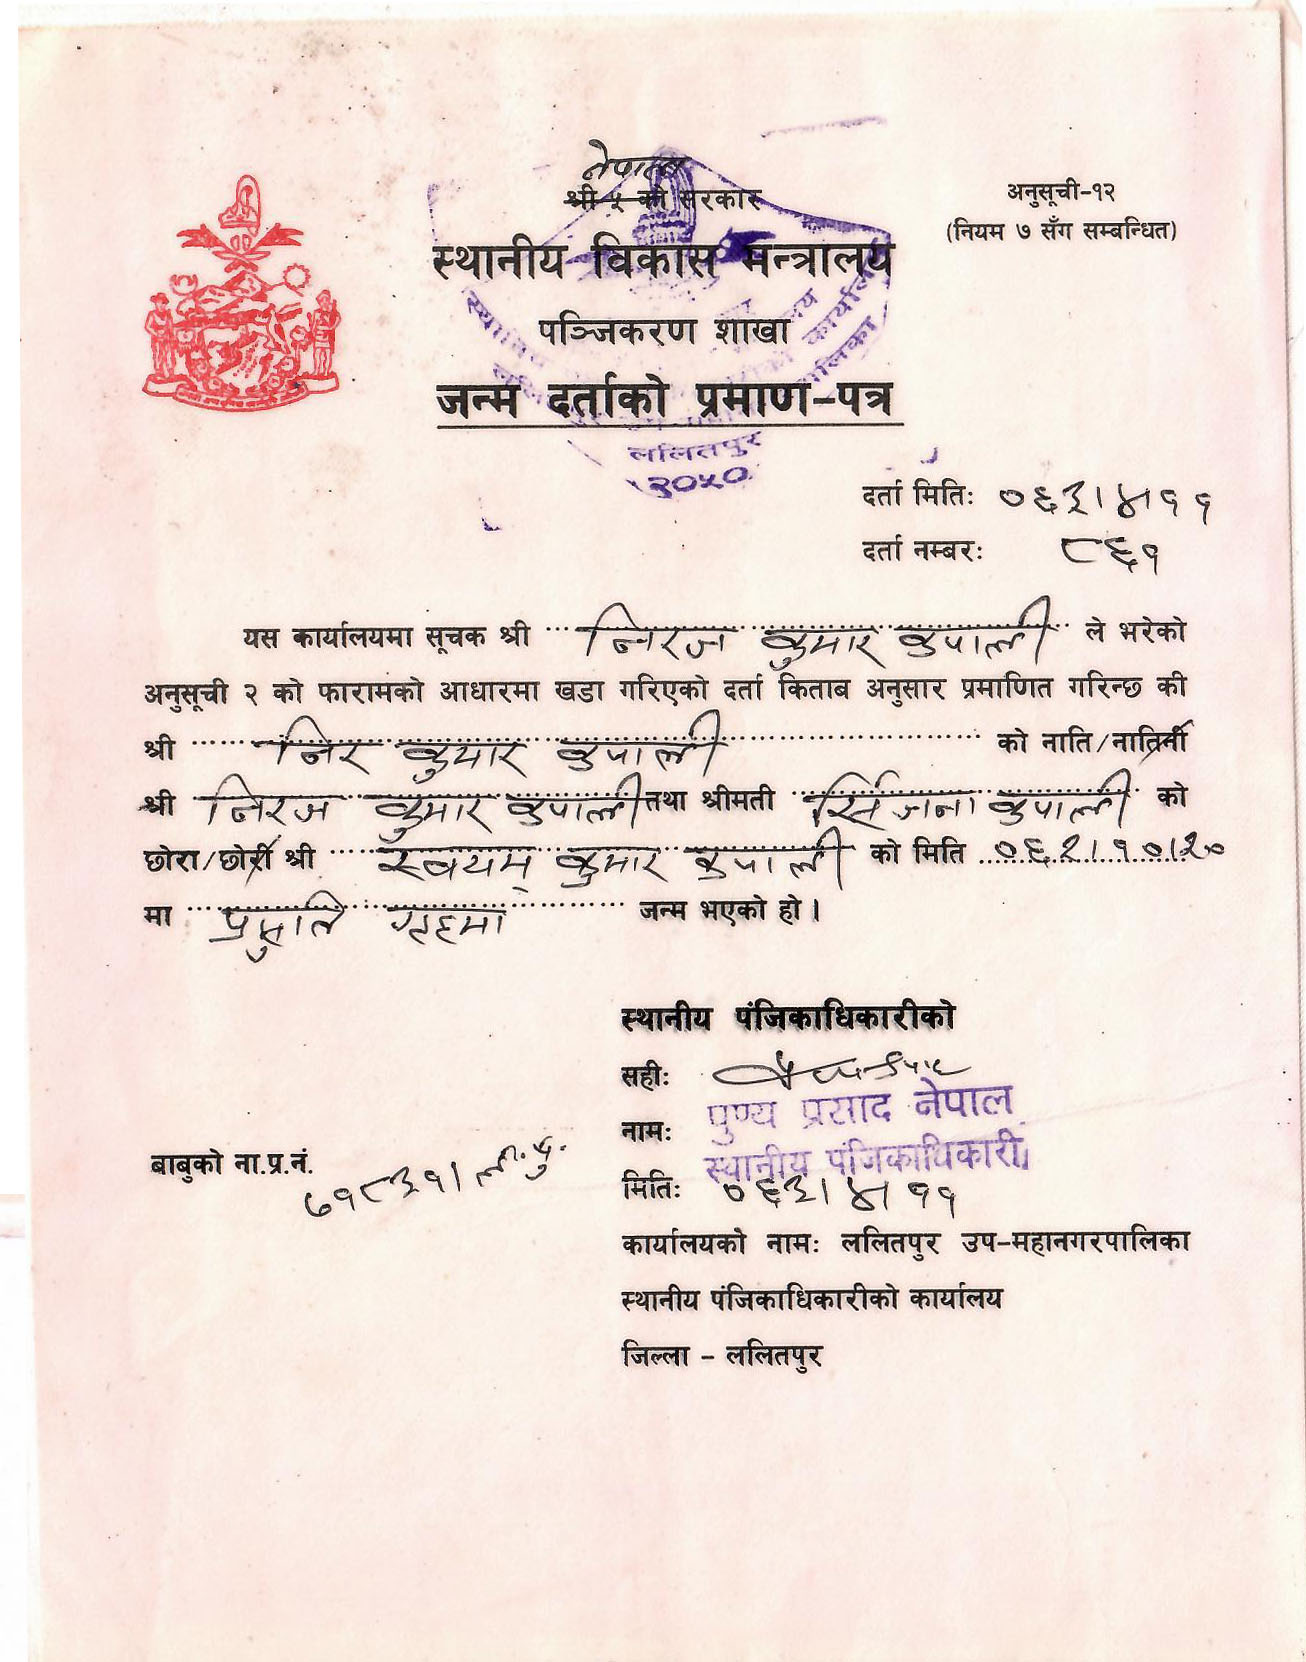 नेपाल
श्री ५ को सरकार
अनुसूची-१२
(नियम ७ सँग सम्बन्धित)
स्थानीय विकास मन्त्रालय
पञ्जिकरण शाखा
जन्म दर्ताको प्रमाण-पत्र
ललितपुर
२०५०
दर्ता मितिः ०६३।४।११
दर्ता नम्बरः ८६१
यस कार्यालयमा सूचक श्री निरज कुमार कुपाली ले भरेको
अनुसूची २ को फारामको आधारमा खडा गरिएको दर्ता किताब अनुसार प्रमाणित गरिन्छ की
श्री निर कुमार कुपाली को नाति/नातिनी
श्री निरज कुमार कुपाली तथा श्रीमती सिर्जना कुपाली को
छोरा/छोरी श्री स्वयम् कुमार कुपाली को मिति ०६२।१०।२०
मा प्रसुति गृहमा जन्म भएको हो।
स्थानीय पंजिकाधिकारीको
सहीः
नामः पुण्य प्रसाद नेपाल
स्थानीय पंजिकाधिकारी
बाबुको ना.प्र.नं. ७१८३१। ल.पु.
मितिः ०६३।४।११
कार्यालयको नामः ललितपुर उप-महानगरपालिका
स्थानीय पंजिकाधिकारीको कार्यालय
जिल्ला - ललितपुर